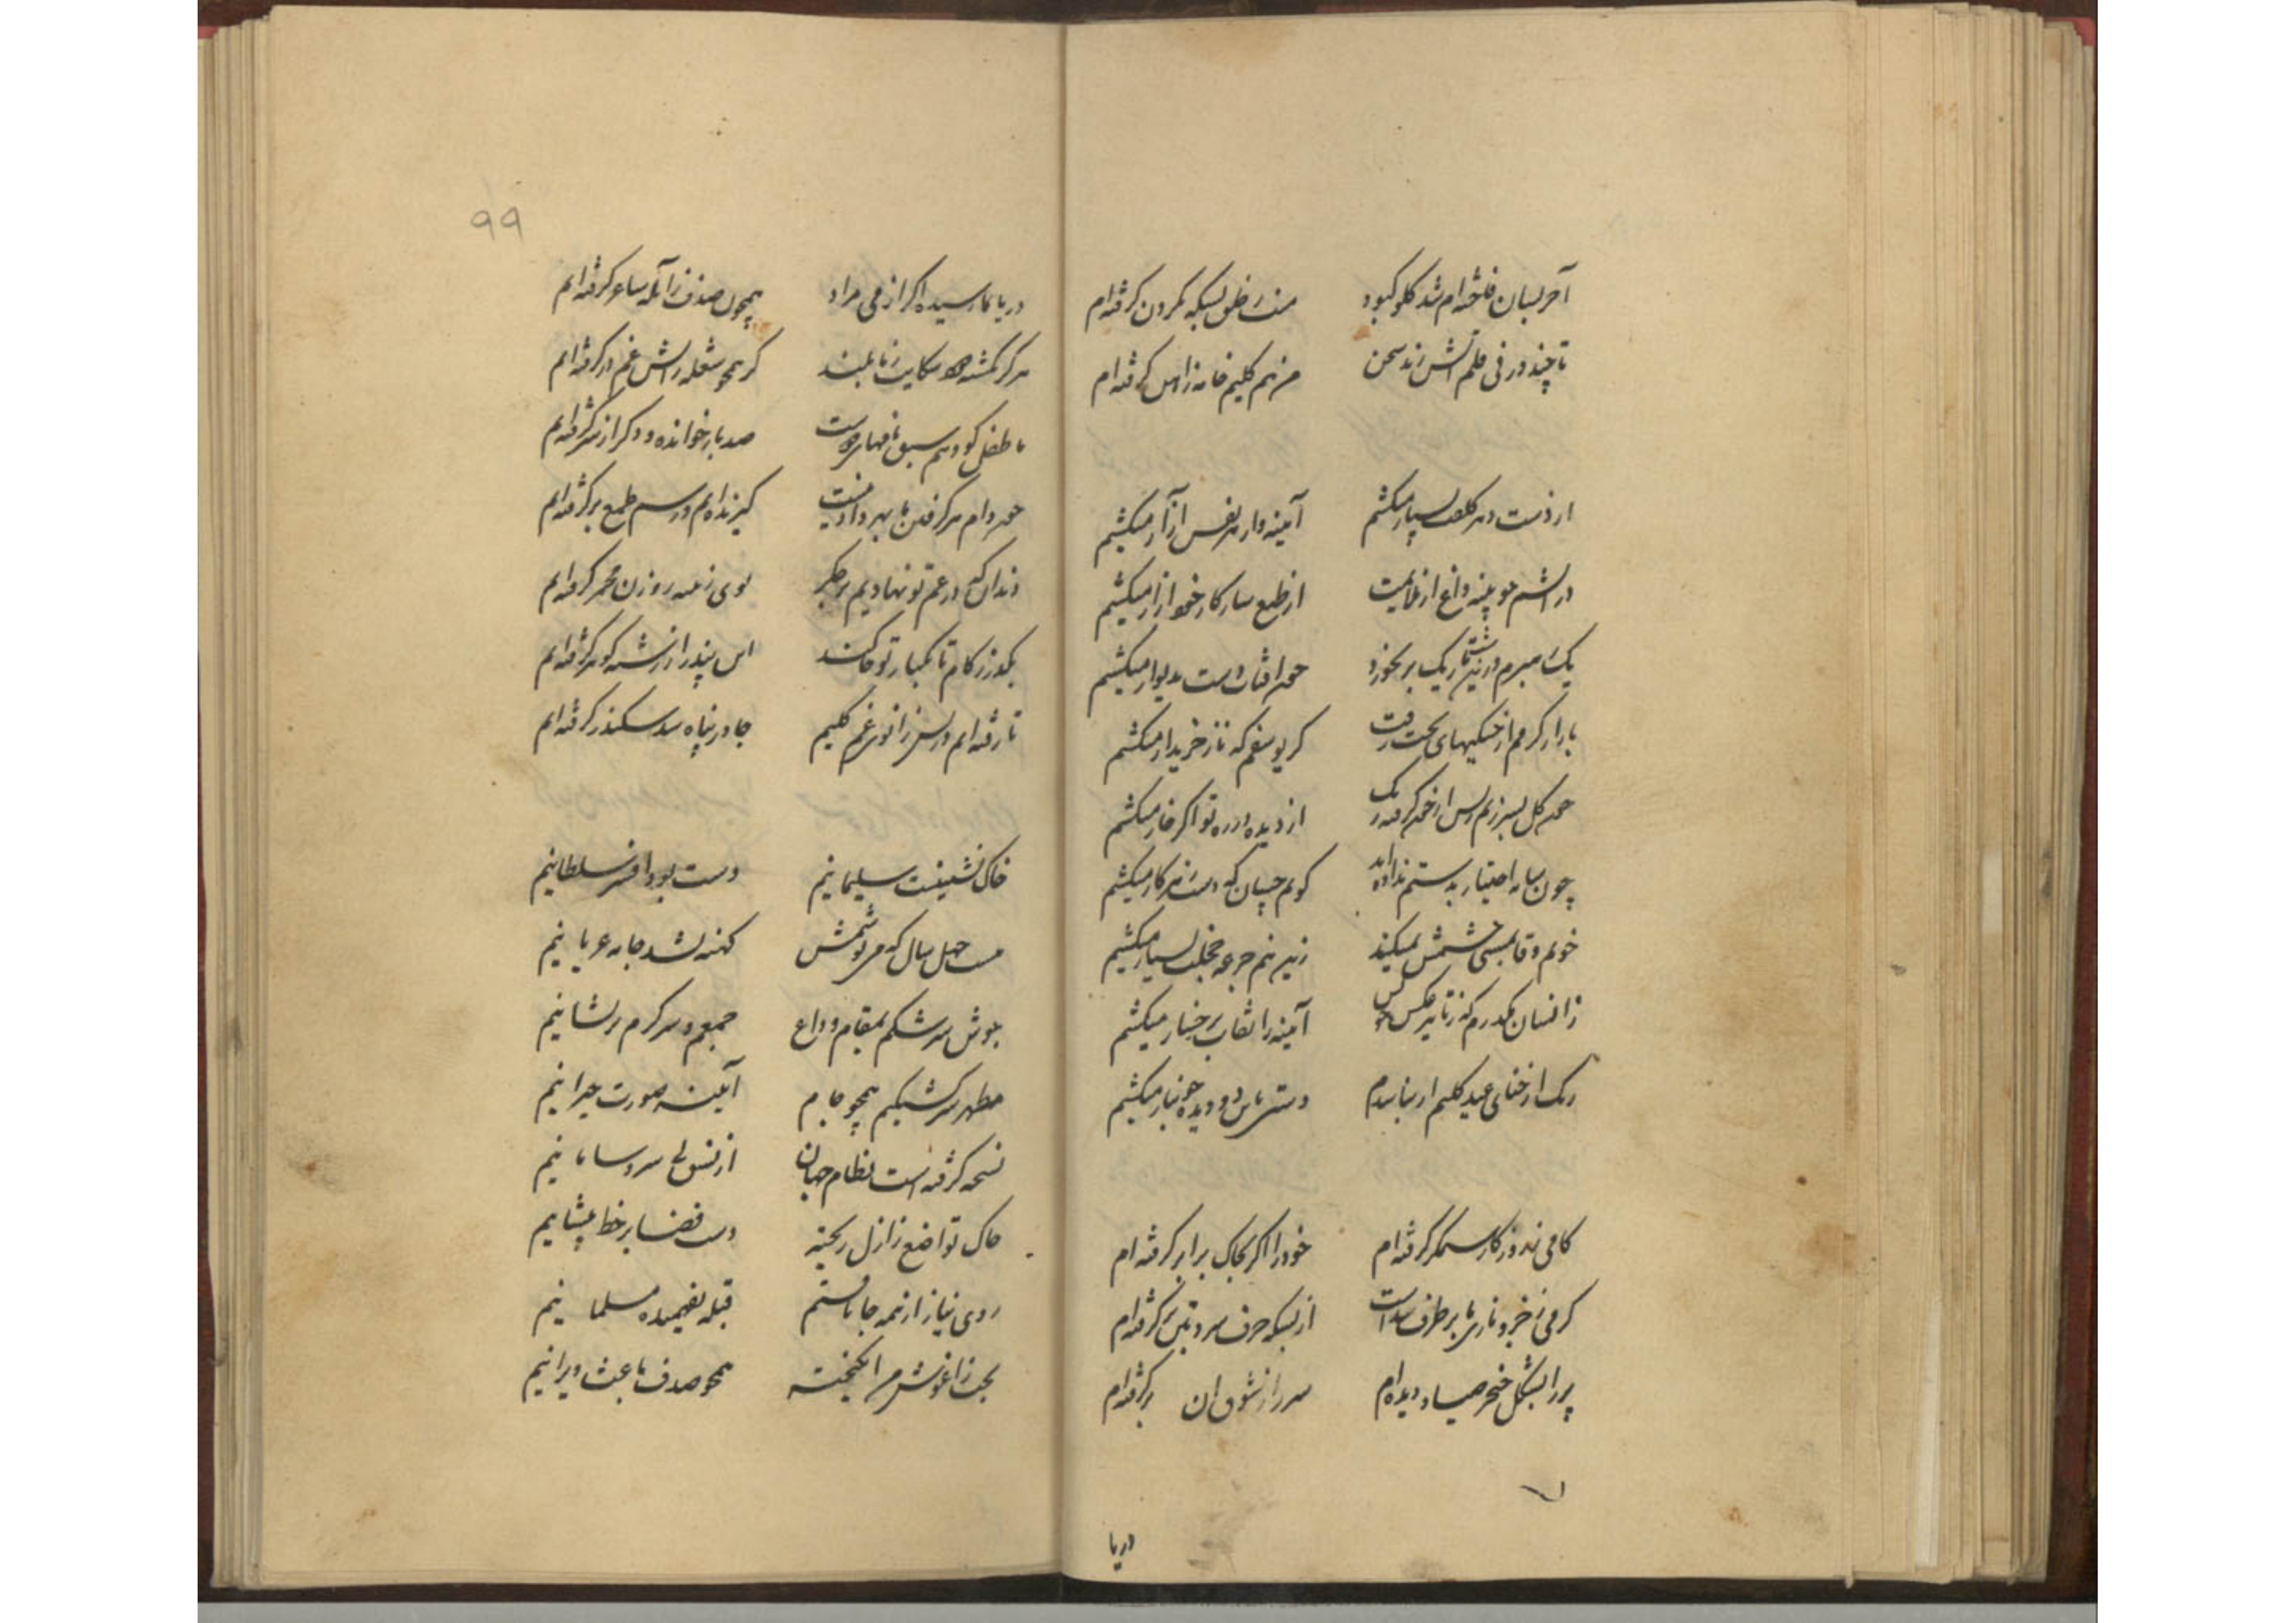 آخر بسان فاخته ام شد گلو کبود منت ز خلق بسکه بگردن گرفته ام
تا چند در نی قلم آتش زند سخن من هم کلیم خامه ز آهن گرفته ام
از دست هر بسیار میکشم آیینه وار از هر نفس آزار میکشم
در آتشم چو پنبه داغ از ملایمت از طبع سازکار خود آزار میکشم
یک بر نخورد چون آفتاب دست بدیوار میکشم
بازار گرمم از خنکیهای بخت رفت گر یوسفم که ناز خریدار میکشم
چون گل بسر زنم پس از خون گرفته رنگ از دیده در ره تو اگر خار میکشم
چون سایه اختیار بدستم نداده اند گویم چسان که دست ز هر کار میکشم
خونم وفا بمستی چشمش نمیکند زین نیم جرعه خجلت بسیار میکشم
زانسان مکدرم که ز تاثیر عکس من آیینه را نقاب برخسار میکشم
رنگ از حنای عید کلیم ار نباشدم دستی باین دو دیده خونبار میکشم
کامی نه روزگار ستمگر گرفته ام خود را اگر بخاک برابر گرفته ام
گرمی ز خیر و ناز بتان بر طرف شده است از بسکه حرف سرد
پر را بشکل خنجر صیاد دیده ام سر را ز شوق آن برگرفته ام
دریا
99
دریا بما رسیده اگر از می مراد همچون صدف ز آبله ساغر گرفته ایم
هرگز نگشته دود شکایت ز ما بلند گر همچو شعله زآتش غم در گرفته ایم
ما طفل کودنیم سبق نافهمیدنست صد بار خوانده و دگر از سر گرفته ایم
چون دام سر گرفتن ما بهر دادنست گیرنده ایم و رسم طمع برگرفته ایم
دندان که در غم تو نهادیم بر جگر بوی ز روزن مجمر گرفته ایم
بگذر ز کام تا فلک یار تو کند این پند را ز رشته گوهر گرفته ایم
تا رفته ایم در پس زانوی غم کلیم جا در پناه سد سکندر گرفته ایم
خاک نشینیست سلیمانیم دست بود افسر سلطانیم
هست چهل سال که می پوشمش کهنه نشد جامه عریانیم
جوش سرشکم بمقام وداع جمعم و سرگرم پریشانیم
مظهر سرگشتگیم همچو جام آینه صورت حیرانیم
نسخه گرفته است نظام جهان از نسق بی سر و سامانیم
خاک تواضع ز ازل ریخته دست قضا بر خط پیشانیم
روی نیاز از همه جا تافتم قبله نفهمیده مسلمانیم
بخت ز آغوش هم انگیخته همچو صدف باعث ویرانیم